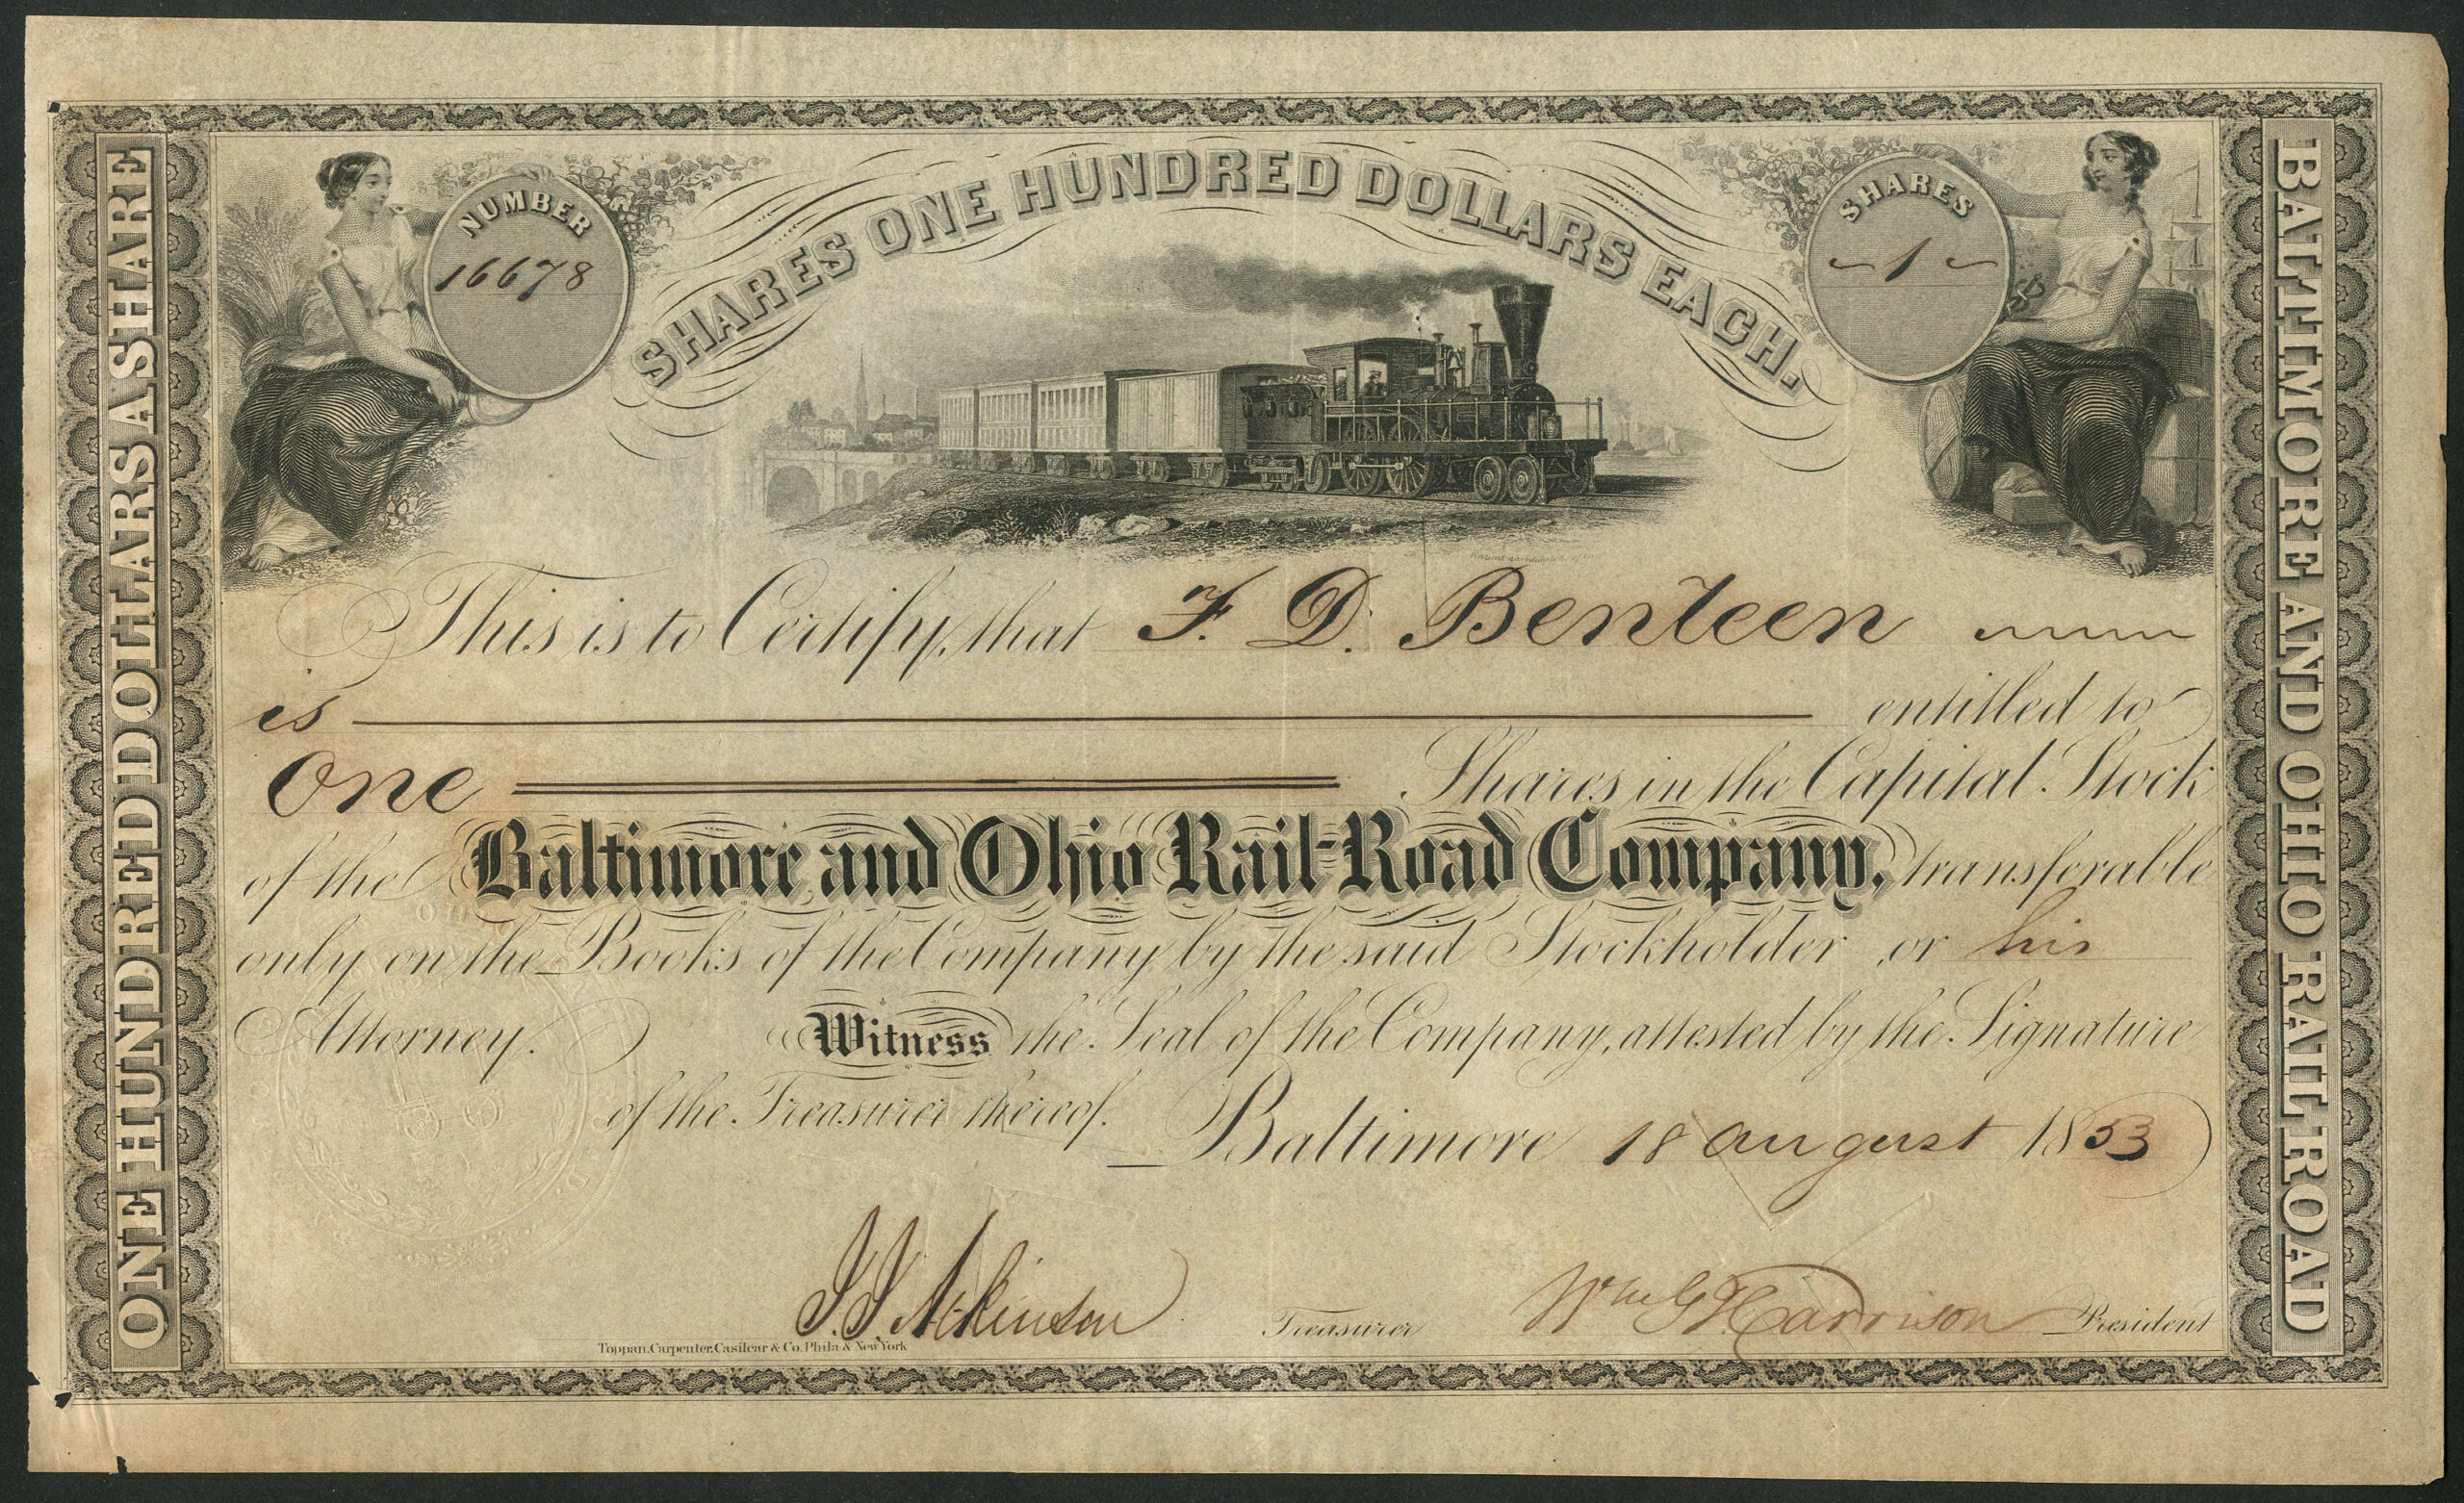 SHARES ONE HUNDRED DOLLARS EACH.
NUMBER
16678
SHARES
1
ONE HUNDRED DOLLARS A SHARE
BALTIMORE AND OHIO RAILROAD
This is to Certify, that F. D. Benteen
is entitled to
One Shares in the Capital Stock
of the Baltimore and Ohio Rail-Road Company, transferable
only on the Books of the Company by the said Stockholder or his
Attorney. Witness the Seal of the Company, attested by the Signature
of the Treasurer thereof.
Baltimore 18 August 1853
J. J. Atkinson Treasurer Wm G Harrison President
Toppan, Carpenter, Casilear & Co. Phila & New York